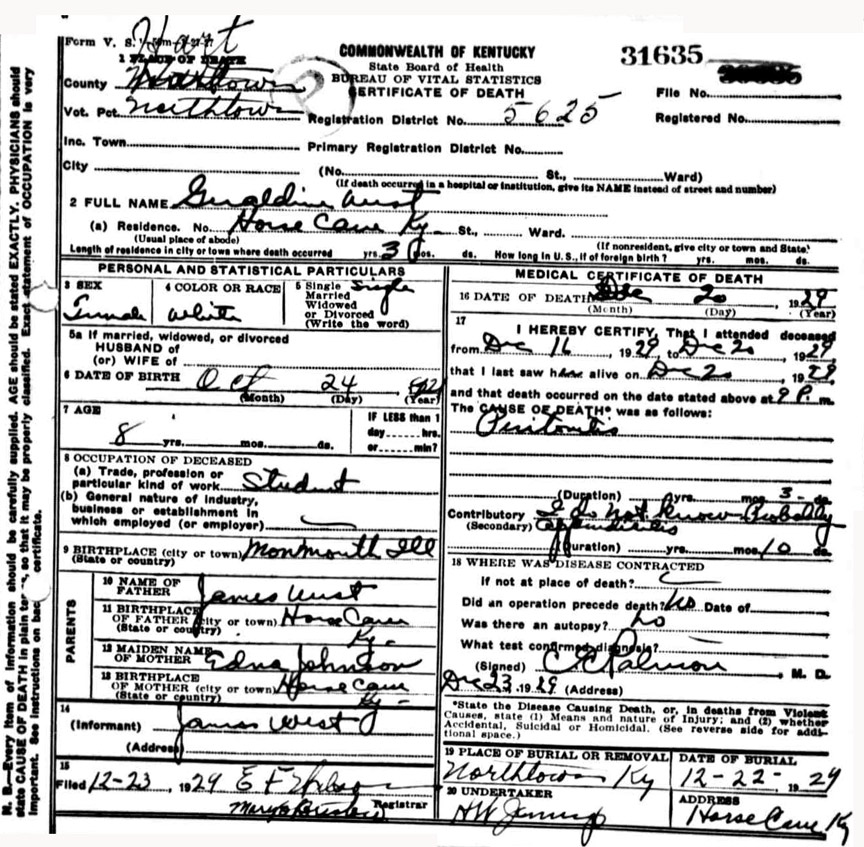 Form V. S.
Hart
COMMONWEALTH OF KENTUCKY
State Board of Health
BUREAU OF VITAL STATISTICS
CERTIFICATE OF DEATH
31635
1 PLACE OF DEATH
County
File No.
Vot. Pct. Northtown
Registration District No. 5625
Registered No.
Inc. Town
Primary Registration District No.
City
(No. St., Ward)
(If death occurred in a hospital or institution, give its NAME instead of street and number)
2 FULL NAME Geraldine West
(a) Residence. No. Horse Cave Ky St., Ward.
(Usual place of abode)
(If nonresident, give city or town and State)
Length of residence in city or town where death occurred yrs. 3 mos. ds. How long in U. S., if of foreign birth? yrs. mos. ds.
PERSONAL AND STATISTICAL PARTICULARS
3 SEX
Female
4 COLOR OR RACE
White
5 Single
Married
Widowed
or Divorced
(Write the word)
Single
5a If married, widowed, or divorced
HUSBAND of
(or) WIFE of
6 DATE OF BIRTH Oct 24
(Month) (Day) (Year)
7 AGE
8 yrs. mos. ds.
IF LESS than 1
day hrs.
or min?
8 OCCUPATION OF DECEASED
(a) Trade, profession or
particular kind of work Student
(b) General nature of industry,
business or establishment in
which employed (or employer)
9 BIRTHPLACE (city or town) Monmouth Ill
(State or country)
PARENTS
10 NAME OF
FATHER James West
11 BIRTHPLACE
OF FATHER (city or town) Horse Cave
(State or country) Ky-
12 MAIDEN NAME
OF MOTHER Edna Johnson
13 BIRTHPLACE
OF MOTHER (city or town) Horse Cave
(State or country) Ky-
14
(Informant) James West
(Address)
15
Filed 12-23, 1929
Registrar
MEDICAL CERTIFICATE OF DEATH
16 DATE OF DEATH Dec 20, 1929
(Month) (Day) (Year)
17
I HEREBY CERTIFY, That I attended deceased
from Dec 16, 1929, to Dec 20, 1929
that I last saw her alive on Dec 20, 1929
and that death occurred on the date stated above at 9 P. m.
The CAUSE OF DEATH* was as follows:
Peritonitis
(Duration) yrs. mos. 3 ds.
Contributory I do not know Probably
(Secondary) appendicitis
(Duration) yrs. mos. 10 ds.
18 WHERE WAS DISEASE CONTRACTED
If not at place of death?
Did an operation precede death? No Date of
Was there an autopsy? no
What test confirmed diagnosis?
(Signed) M. D.
Dec 23, 1929 (Address)
*State the Disease Causing Death, or, in deaths from Violent
Causes, state (1) Means and nature of Injury; and (2) whether
Accidental, Suicidal or Homicidal. (See reverse side for addi-
tional space.)
19 PLACE OF BURIAL OR REMOVAL
Northtown Ky
DATE OF BURIAL
12-22-1929
20 UNDERTAKER
ADDRESS
Horse Cave Ky
N. B.—Every item of information should be carefully supplied. AGE should be stated EXACTLY. PHYSICIANS should
state CAUSE OF DEATH in plain so that it may be properly classified. Exact statement of OCCUPATION is very
important. See instructions on back certificate.